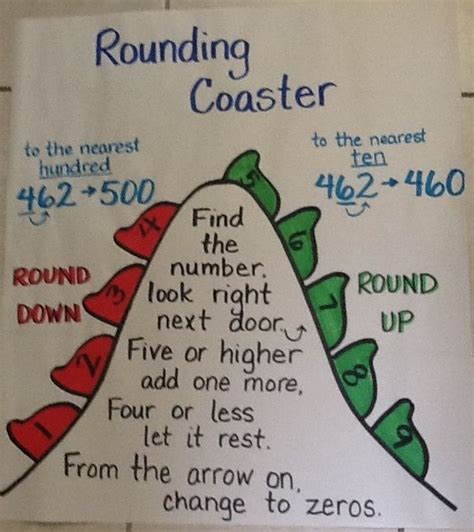 Rounding
Coaster
to the nearest
hundred
462→500
to the nearest
ten
462→460
ROUND
DOWN
1
2
3
4
5
6
7
8
9
ROUND
UP
Find
the
number.
look right
next door.
Five or higher
add one more,
Four or less
let it rest.
From the arrow on,
change to zeros.